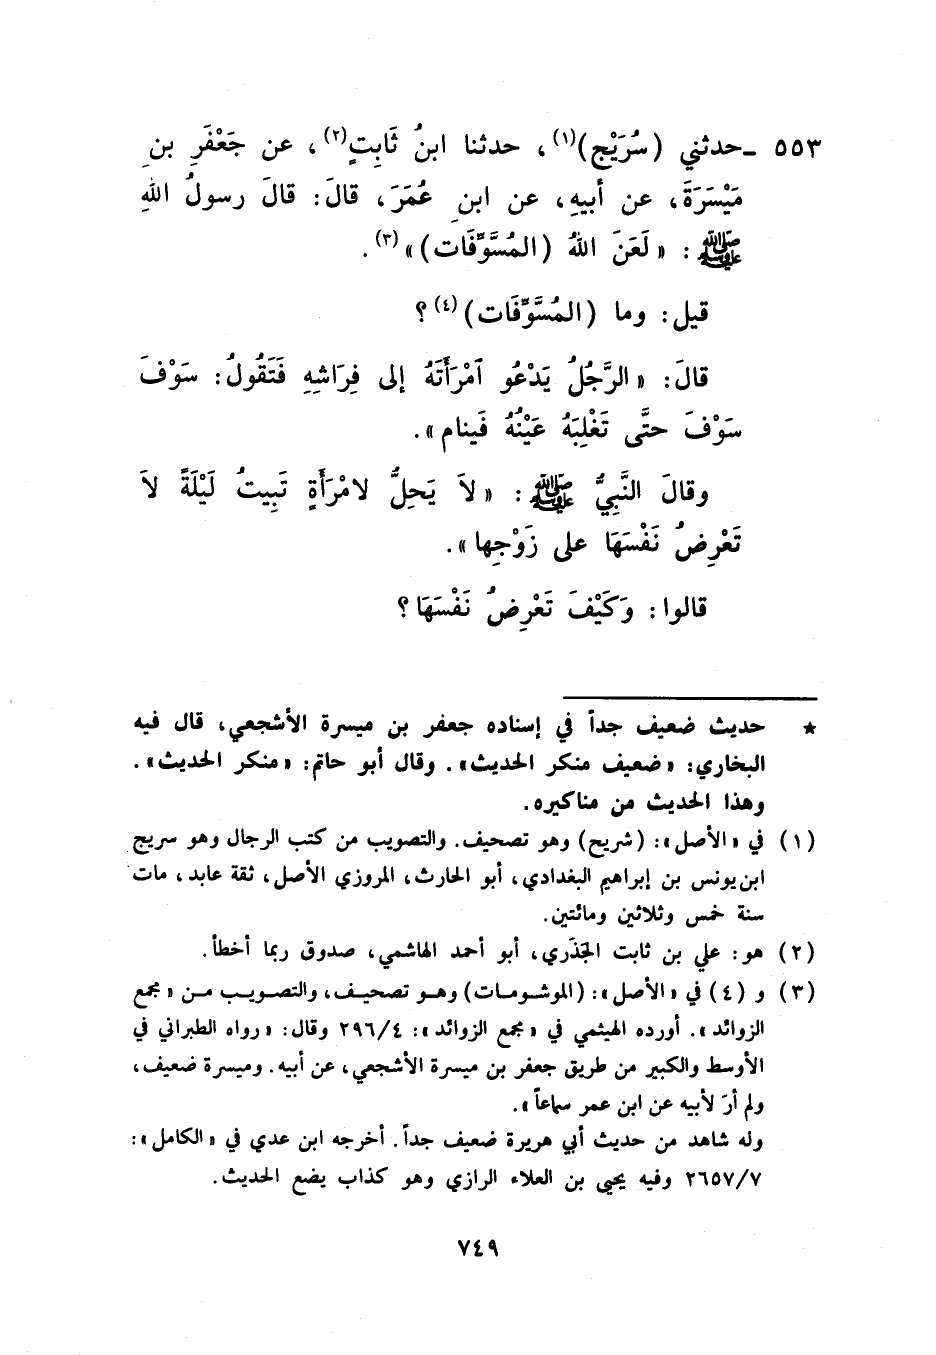 ٥٥٣ ـ حدثني (سُرَيْج)(١)، حدثنا ابنُ ثَابِتٍ(٢)، عن جَعْفَرِ بنِ
مَيْسَرَةَ، عن أبيهِ، عن ابنِ عُمَرَ، قالَ: قالَ رسولُ اللهِ
ﷺ: « لَعَنَ اللهُ (المُسَّوِّفَات) »(٣).
قيل: وما (المُسَّوِّفَات)(٤)؟
قالَ: « الرَّجُلُ يَدْعُو ٱمْرَأَتَهُ إلى فِرَاشِهِ فَتَقُولُ: سَوْفَ
سَوْفَ حتَّى تَغْلِبَهُ عَيْنُهُ فَينام ».
وقالَ النَّبِيُّ ﷺ: « لاَ يَحِلُّ لامْرَأَةٍ تَبِيتُ لَيْلَةً لاَ
تَعْرِضُ نَفْسَهَا على زَوْجِها ».
قالوا: وَكَيْفَ تَعْرِضُ نَفْسَهَا؟
★ حديث ضعيف جداً في إسناده جعفر بن ميسرة الأشجعي، قال فيه
البخاري: « ضعيف منكر الحديث ». وقال أبو حاتم: « منكر الحديث ».
وهذا الحديث من مناكيره.
(١) في « الأصل »: (شريح) وهو تصحيف. والتصويب من كتب الرجال وهو سريج
ابن يونس بن إبراهيم البغدادي، أبو الحارث، المروزي الأصل، ثقة عابد، مات
سنة خمس وثلاثين ومائتين.
(٢) هو: علي بن ثابت الجَذَري، أبو أحمد الهاشمي، صدوق ربما أخطأ.
(٣) و (٤) في « الأصل »: (الموشومات) وهو تصحيف، والتصويب من « مجمع
الزوائد ». أورده الهيثمي في « مجمع الزوائد »: ٢٩٦/٤ وقال: « رواه الطبراني في
الأوسط والكبير من طريق جعفر بن ميسرة الأشجعي، عن أبيه. وميسرة ضعيف،
ولم أرَ لأبيه عن ابن عمر سماعاً ».
وله شاهد من حديث أبي هريرة ضعيف جداً. أخرجه ابن عدي في « الكامل »:
٢٦٥٧/٧ وفيه يحيى بن العلاء الرازي وهو كذاب يضع الحديث.
٧٤٩